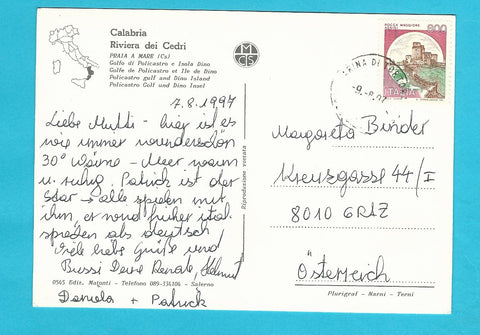 Calabria
Riviera dei Cedri
PRAIA A MARE (Cs)
Golfo di Policastro e Isola Dino
Golfe de Policastro et Ile de Dino
Policastro gulf and Dino Island
Policastro Golf und Dino Insel
MCS
ROCCA MAGGIORE
ASSISI
900
ITALIA
7.8.1997
Liebe Mutti - hier ist es
wie immer wunderschön
30° Wärme - Meer warm
u. ruhig. Patrick ist der
Star - alle spielen mit
ihm, er wird früher ital.
sprechen als deutsch
Viele liebe Grüße und
Bussi Deine Renate, Helmut
Daniela + Patrick
Riproduzione vietata
Margareta Binder
Kreuzgasse 44/I
8010 GRAZ
Österreich
0565 Ediz. Matonti - Telefono 089-336106 - Salerno
Plurigraf - Narni - Terni